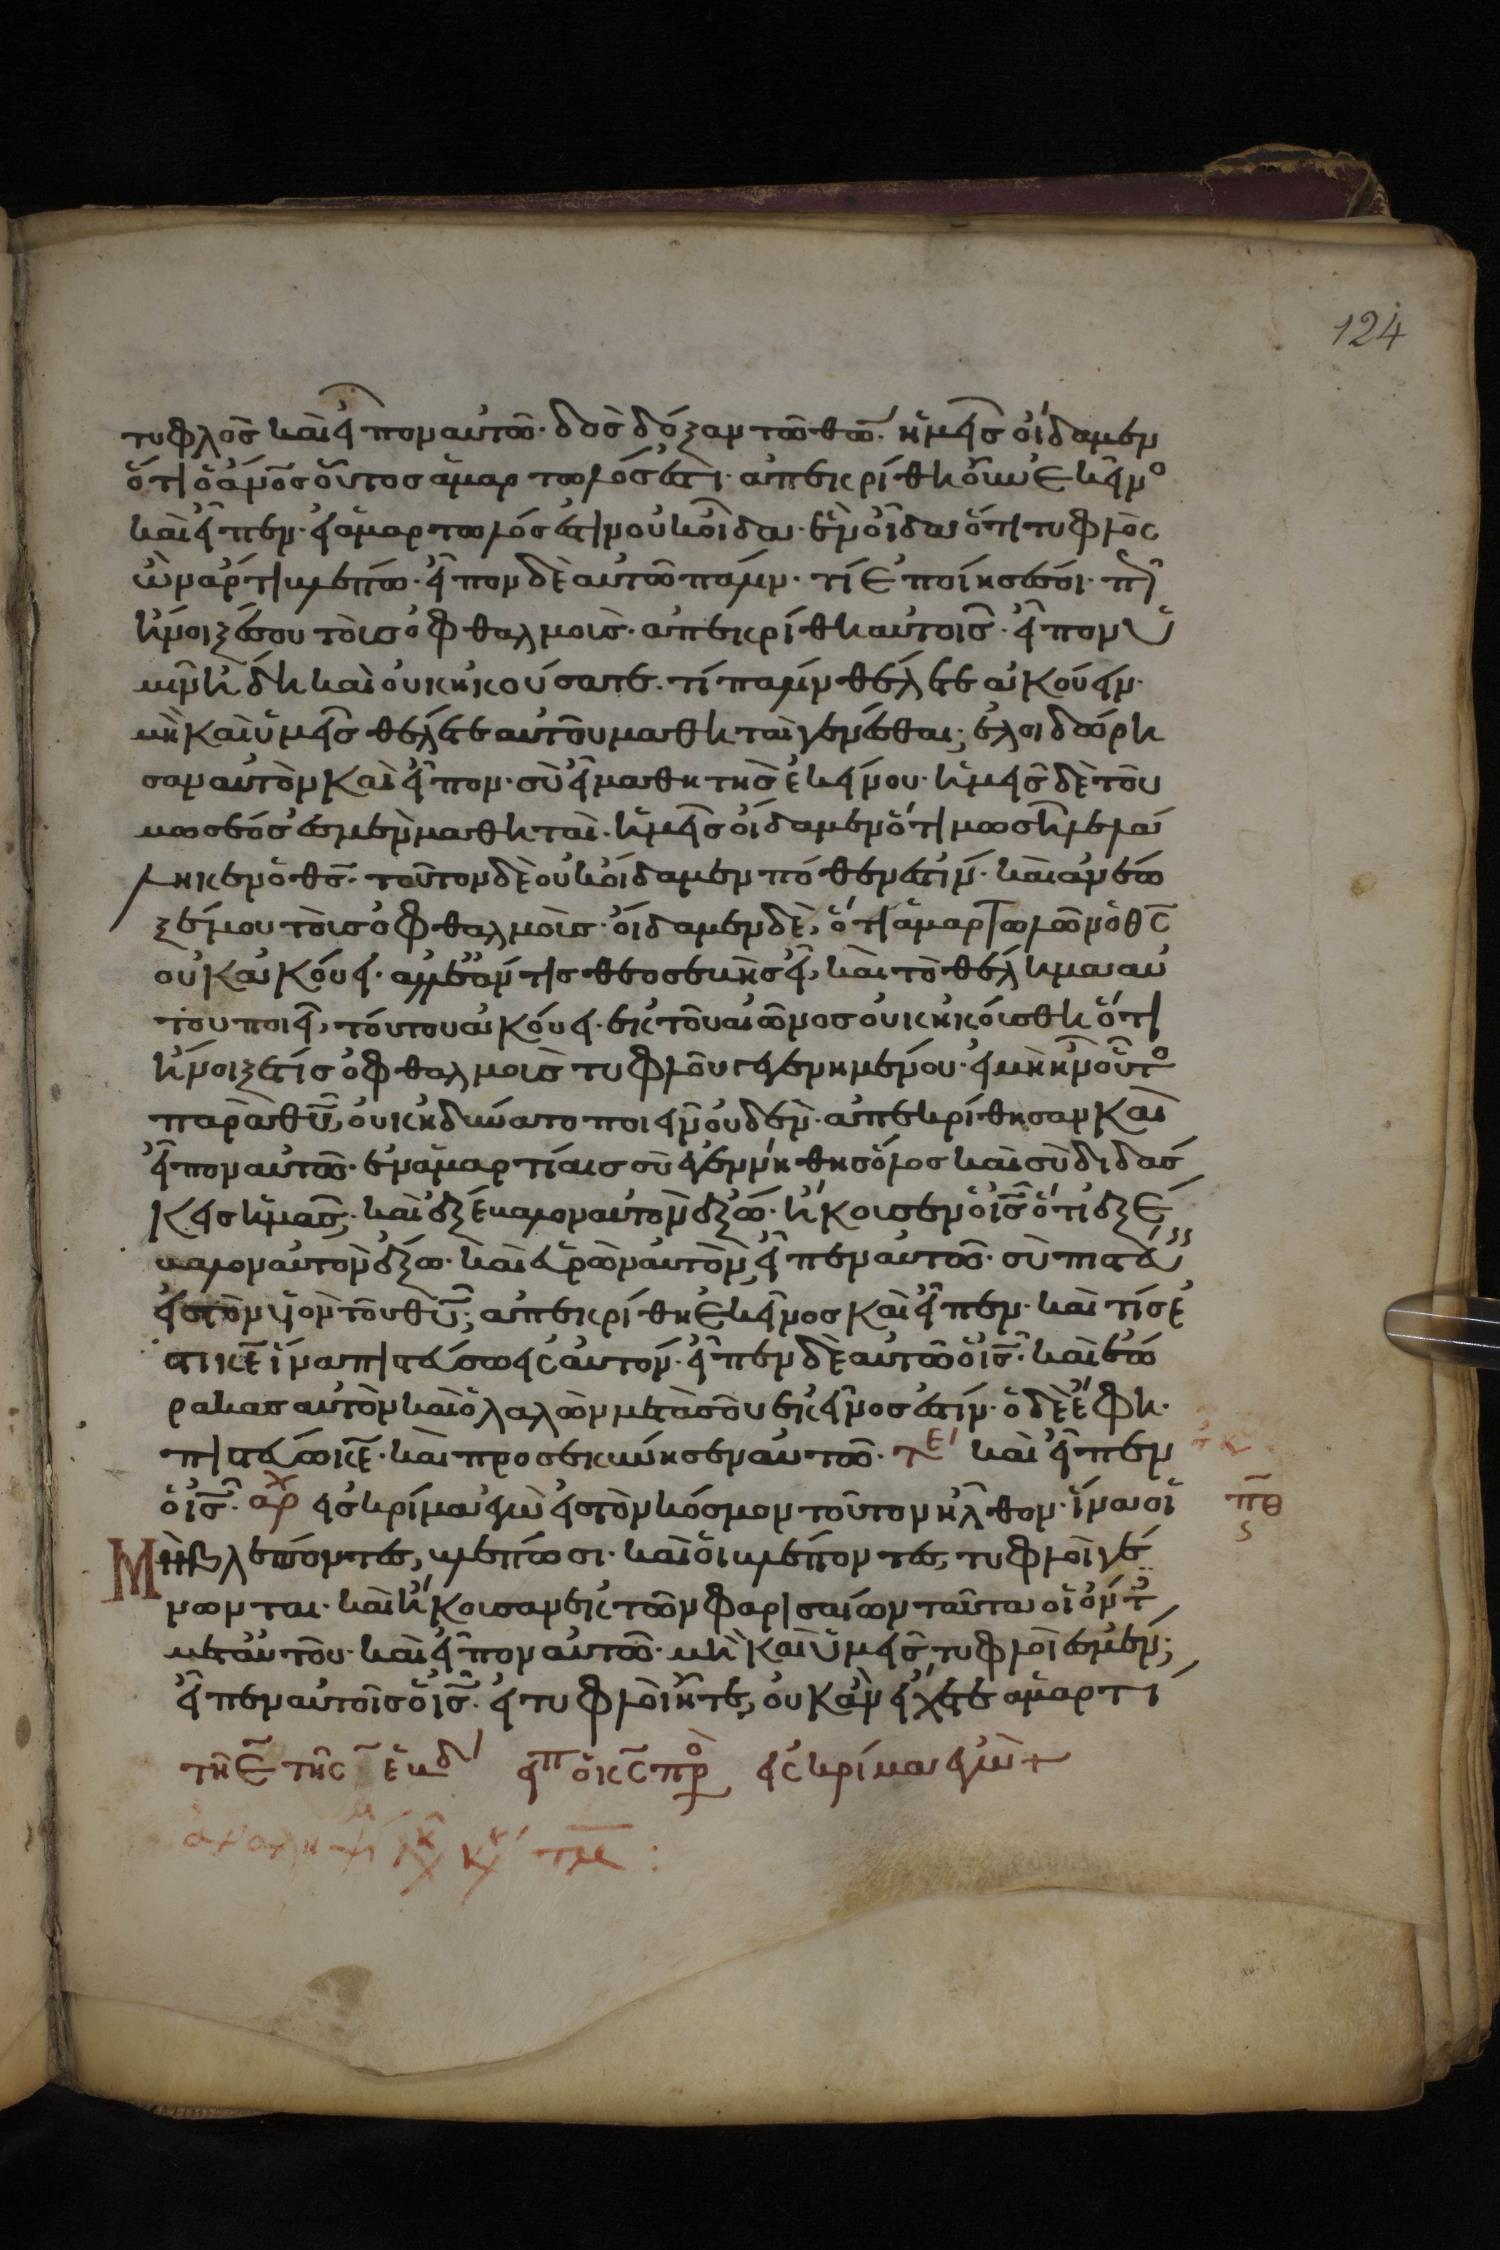 124
τυφλὸς καὶ εἶπον αὐτῶ· δὸς δόξαν τῶ θω̅· ἡμεῖς οἴδαμεν
ὅτι ὁ ἄνο̅ς οὗτος ἁμαρτωλός ἐστι· ἀπεκρίθη οὖν ἐκεῖνο
καὶ εἶπεν· εἰ ἁμαρτωλός ἐστιν οὐκ οἶδα· ἓν οἶδα ὅτι τυφλὸς
ὢν ἄρτι βλέπω· εἶπον δὲ αὐτῶ πάλιν· τί ἐποίησέ σοι· πῶς
ἤνοιξέ σου τοὺς ὀφθαλμούς· ἀπεκρίθη αὐτοῖς· εἶπον ὑ
μῖν ἤδη καὶ οὐκ ἠκούσατε· τί πάλιν θέλετε ἀκούειν·
μὴ καὶ ὑμεῖς θέλετε αὐτοῦ μαθηταὶ γενέσθαι; ἐλοιδόρη
σαν αὐτὸν καὶ εἶπον· σὺ εἶ μαθητὴς ἐκείνου· ἡμεῖς δὲ τοῦ
μωσέος ἐσμὲν μαθηταί· ἡμεῖς οἴδαμεν ὅτι μωσῆ λελά
ληκεν ὁ θς̅· τοῦτον δὲ οὐκ οἴδαμεν πόθεν ἐστίν· καὶ ἀνέω
ξέ μου τοὺς ὀφθαλμούς· οἴδαμεν δὲ, ὅτι ἁμαρτωλῶν ὁ θς̅
οὐκ ἀκούει· ἀλλ' ἐάν τις θεοσεβὴς εἶ, καὶ τὸ θέλημα αὐ
τοῦ ποιεῖ, τούτου ἀκούει· ἐκ τοῦ αἰῶνος οὐκ ἠκούσθη ὅτι
ἤνοιξέ τις ὀφθαλμοὺς τυφλοῦ γεγενημένου· εἰ μὴ ἦν οὗτο
παρὰ θυ̅, οὐκ ἠδύνατο ποιεῖν οὐδέν· ἀπεκρίθησαν καὶ
εἶπον αὐτῶ· ἐν ἁμαρτίαις σὺ ἐγεννήθης ὅλος καὶ σὺ διδάσ
κεις ἡμᾶς; καὶ ἐξέβαλον αὐτὸν ἔξω· ἤκουσεν ὁ ις̅ ὅτι ἐξέ
βαλον αὐτὸν ἔξω· καὶ εὑρὼν αὐτὸν εἶπεν αὐτῶ· σὺ πιστεύ
εις τὸν υἱὸν τοῦ θυ̅; ἀπεκρίθη ἐκεῖνος καὶ εἶπεν· καὶ τίς ἐ
στι κε̅ ἵνα πιστεύσω εἰς αὐτόν· εἶπεν δὲ αὐτῶ ὁ ις̅· καὶ ἑώ
ρακας αὐτὸν καὶ ὁ λαλῶν μετὰ σοῦ ἐκεῖνος ἐστίν· ὁ δὲ ἔφη·
πιστεύω κε̅· καὶ προσεκύνησεν αὐτῶ· τε καὶ εἶπεν
ὁ ις̅· αρχ εἰς κρίμα ἐγὼ εἰς τὸν κόσμον τοῦτον ἦλθον· ἵνα οἱ
πθ
ς
Μὴ βλέποντες, βλέπωσι· καὶ οἱ βλέποντες, τυφλοὶ γέ
νωνται· καὶ ἤκουσαν ἐκ τῶν φαρισαίων ταῦτα οἱ ὄντ
μετ' αὐτοῦ· καὶ εἶπον αὐτῶ· μὴ καὶ ὑμεῖς τυφλοί ἐσμεν;
εἶπεν αὐτοῖς ὁ ις̅· εἰ τυφλοὶ ἦτε, οὐκ ἂν εἴχετε ἁμαρτί
τῆ ε τῆς ἑβδ εἶπ ὁ κς̅ πρὸ εἰς κρίμα ἐγὼ